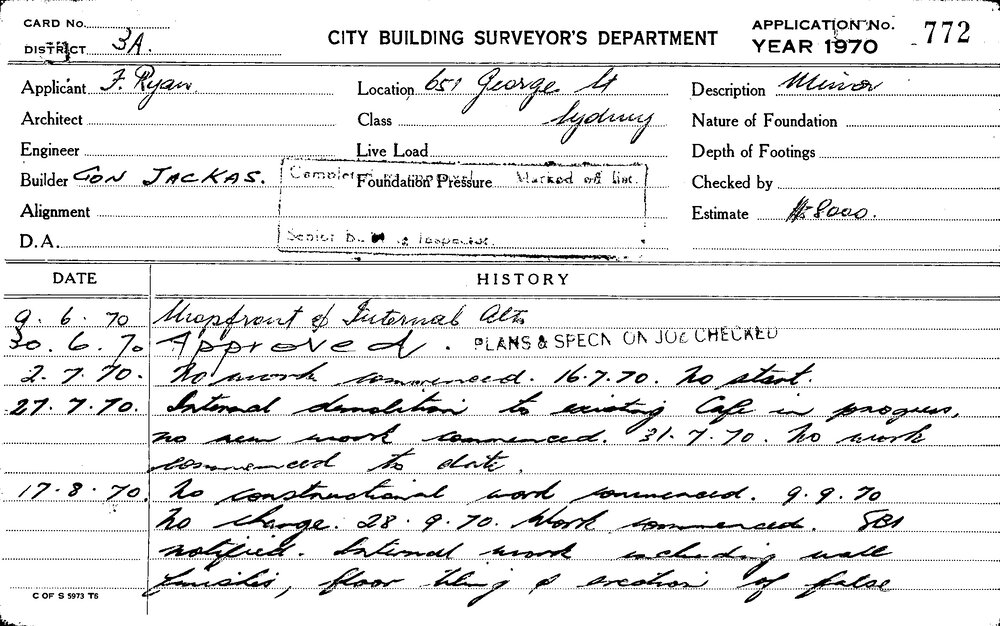 CARD No.
DISTRICT 3A.
CITY BUILDING SURVEYOR'S DEPARTMENT
APPLICATION No. 772
YEAR 1970
Applicant F. Ryan.
Location 657 George St
Description Minor
Architect
Class Sydney
Nature of Foundation
Engineer
Live Load
Depth of Footings
Builder CON JACKAS.
Completed as approval Marked off list.
Foundation Pressure
Checked by
Alignment
Estimate $8000.
D.A.
Senior Building Inspector.
DATE HISTORY
9.6.70 Shopfront & Internal Alts
30.6.70 Approved. PLANS & SPECN ON JOB CHECKED
2.7.70. No work commenced. 16.7.70. No start.
27.7.70. Internal demolition to existing Cafe in progress,
no new work commenced. 31.7.70. No work
commenced to date.
17.8.70. No constructional work commenced. 9.9.70
No change. 28.9.70. Work commenced.
notified. Internal work including wall
finishes, floor tiling & erection of false
C OF S 5973 T6